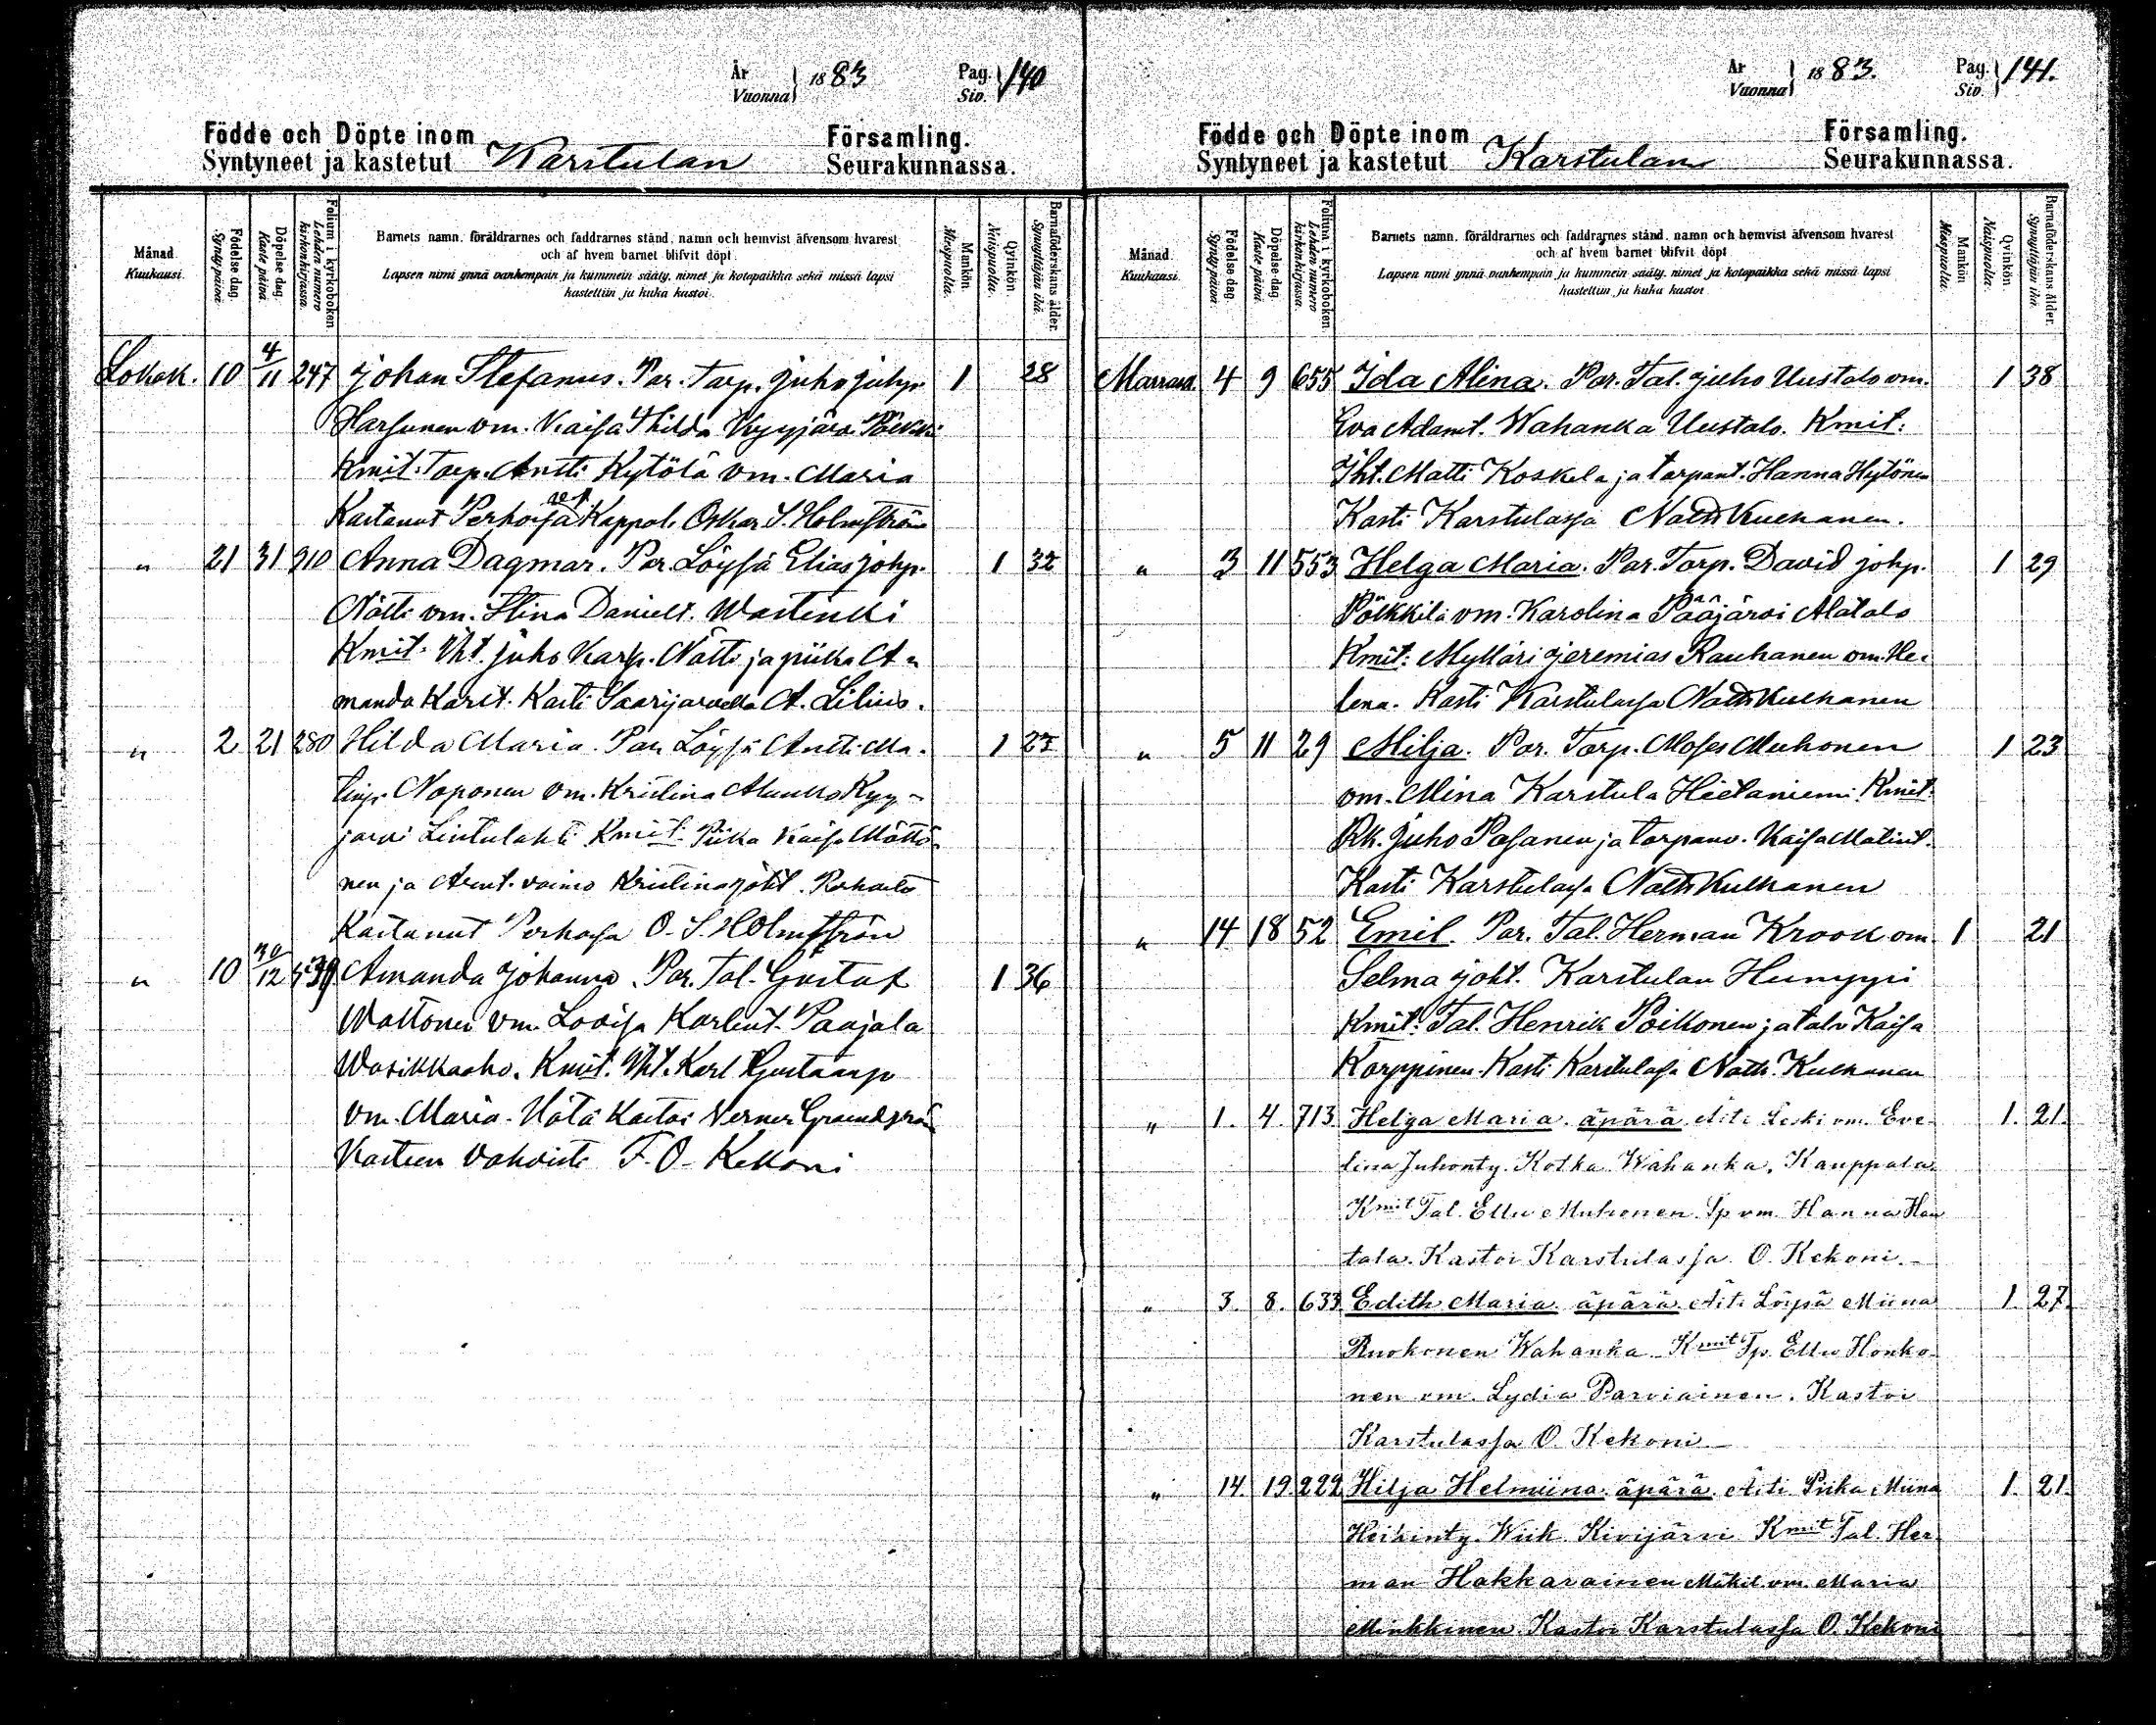 År
Vuonna } 1883
Pag.
Siv. } 140
Födde och Döpte inom
Syntyneet ja kastetut Karstulan
Församling.
Seurakunnassa.
Månad.
Kuukausi.
Födelse dag.
Synty päivä.
Döpelse dag.
Kaste päivä
Folium i kyrkoboken.
Lehden numero
kirkonkirjassa.
Barnets namn, föräldrarnes och faddrarnes stånd, namn och hemvist äfvensom hvarest
och af hvem barnet blifvit döpt.
Lapsen nimi ynnä vanhempain ja kummein sääty, nimet ja kotopaikka sekä missä lapsi
kastettiin ja kuka kastoi.
Mankön.
Miespuolta.
Qvinkön.
Naispuolta.
Barnaföderskans ålder.
Synnyttäjän ikä.
Lokak. 10 4/11 247 Johan Stefanus. Par. Torp. Juho Juhp. 1 28
Harjunen vm. Kaisa Thilda Kyyjärvi
Kmit. Torp. Antti Kytölä vm. Maria
Kastanut Perhossa Kappal. Oskar S. Holmström
" 21 31 310 Anna Dagmar. Par Löysä Elias Johp. 1 32
Nätti vm. Stina Danielt. Wastinki
Kmit. Yht. Juho Karlp. Nätti ja piika A-
manda Karlt. Kasti Saarijarvella A. Lilius.
" 2 21 280 Hilda Maria. Par Löysä Antti Ma- 1 27
tinp. Noponen vm. Kristina Kyy-
jarvi Lintulahti Kmit. Piika Kaisa Möttö-
nen ja vaimo Kristina Joht.
Kastanut Perhossa O. S. Holmström
" 10 30/12 539 Amanda Johanna. Par. Tal. Gustaf 1 36
Wattonen vm. Lovisa Karlint. Paajala
Wasikkaaho. Kmit. Yht. Karl Gustaanp
vm. Maria. Hätä Kastoi Verner
Kasteen vahvisti F. O. Kekoni
År
Vuonna } 1883.
Pag.
Siv. } 141.
Födde och Döpte inom
Syntyneet ja kastetut Karstulan
Församling.
Seurakunnassa.
Månad.
Kuukausi.
Födelse dag.
Synty päivä.
Döpelse dag.
Kaste päivä
Folium i kyrkoboken.
Lehden numero
kirkonkirjassa.
Barnets namn, föräldrarnes och faddrarnes stånd, namn och hemvist äfvensom hvarest
och af hvem barnet blifvit döpt.
Lapsen nimi ynnä vanhempain ja kummein sääty, nimet ja kotopaikka sekä missä lapsi
kastettiin ja kuka kastoi.
Mankön
Miespuolta.
Qvinkön.
Naispuolta.
Barnaföderskans ålder.
Synnyttäjän ikä.
Marrask. 4 9 655 Ida Alina. Par. Tal. Juho Uustalo vm. 1 38
Eva Adamt. Wahanka Uustalo. Kmit.
Yht. Matti Koskela ja torpant. Hanna Hytönen
Kasti Karstulassa Nath Kuckanen.
" 3 11 553 Helga Maria. Par. Torp. David Johp. 1 29
Pölkkilä vm. Karolina Pääjärvi Alatalo
Kmit: Mylläri Jeremias Rauhanen vm. He-
lena. Kasti Karstulassa Nath Kuckanen
" 5 11 29 Milja. Par. Torp. Moses Muhonen 1 23
vm. Mina Karstula Hietaniemi Kmit.
Rk. Juho Pasanen ja torpanv. Kaisa Matint.
Kasti Karstulassa Nath Kuckanen
" 14 18 52 Emil. Par. Tal. Herman Krook vm. 1 21
Selma Joht. Karstulan Humppi
Kmit. Tal. Henrik Poikonen ja talv Kaisa
Korppinen. Kasti Karstulassa Nath. Kuckanen
" 1. 4. 713. Helga Maria. äpärä. Äiti Leski vm. Eve- 1. 21.
lina Juhonty. Kotka Wahanka, Kauppala.
Kmit Tal. Ellu Muhonen. Tp vm. Hanna Han
tala. Kastoi Karstulassa O. Kekoni. -
" 3. 8. 633 Edith Maria. äpärä. Äiti Löysä Miina 1. 27.
Ruokonen Wahanka. Kmit Tp. Ellu Honko-
nen vm. Lydia Parviainen. Kastoi
Karstulassa O. Kekoni -
" 14. 19. 222 Hilja Helmiina. äpärä. Äiti Piika Miina 1. 21.
Heikinty. Wiik. Kivijärvi Kmit Tal. Her
man Hakkarainen Mäkit. vm. Maria
Minkkinen. Kastoi Karstulassa O. Kekoni